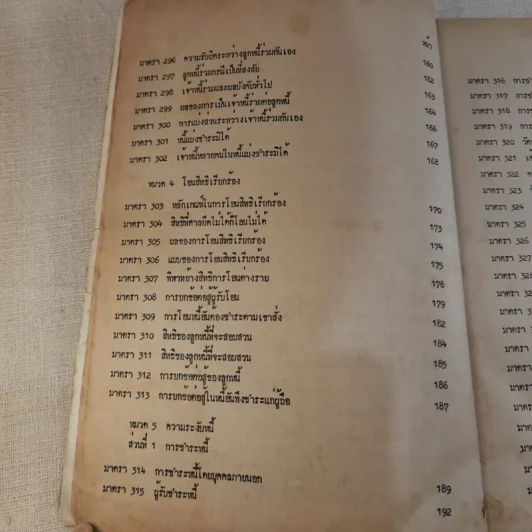 หน้า
มาตรา 296 ความรับผิดระหว่างลูกหนี้ร่วมกันเอง 160
มาตรา 297 ลูกหนี้ร่วมกรณีเป็นที่สงสัย 162
มาตรา 298 เจ้าหนี้ร่วมและผลบังคับทั่วไป 163
มาตรา 299 ผลของการเป็นเจ้าหนี้ร่วมต่อลูกหนี้ 164
มาตรา 300 การแบ่งส่วนระหว่างเจ้าหนี้ร่วมกันเอง 166
มาตรา 301 หนี้แบ่งชำระมิได้ 167
มาตรา 302 เจ้าหนี้หลายคนในหนี้แบ่งชำระมิได้ 168
หมวด 4 โอนสิทธิเรียกร้อง
มาตรา 303 หลักเกณฑ์ในการโอนสิทธิเรียกร้อง 170
มาตรา 304 สิทธิที่ศาลยึดไม่ได้ก็โอนไม่ได้ 173
มาตรา 305 ผลของการโอนสิทธิเรียกร้อง 174
มาตรา 306 แบบของการโอนสิทธิเรียกร้อง 175
มาตรา 307 พิพาทอ้างสิทธิการโอนต่างราย 178
มาตรา 308 การยกข้อต่อสู้ผู้รับโอน 179
มาตรา 309 การโอนหนี้อันต้องชำระตามเขาสั่ง 182
มาตรา 310 สิทธิของลูกหนี้ที่จะสอบสวน 184
มาตรา 311 สิทธิของลูกหนี้ที่จะสอบสวน 185
มาตรา 312 การยกข้อต่อสู้ของลูกหนี้ 186
มาตรา 313 การยกข้อต่อสู้ในหนี้อันพึงชำระแก่ผู้ถือ 187
หมวด 5 ความระงับหนี้
ส่วนที่ 1 การชำระหนี้
มาตรา 314 การชำระหนี้โดยบุคคลภายนอก 189
มาตรา 315 ผู้รับชำระหนี้ 192
มาตรา 316
มาตรา 317
มาตรา 318
มาตรา 319
มาตรา 320
มาตรา 321
มาตรา 322
มาตรา 323
มาตรา 324
มาตรา 325
มาตรา 326
มาตรา 327